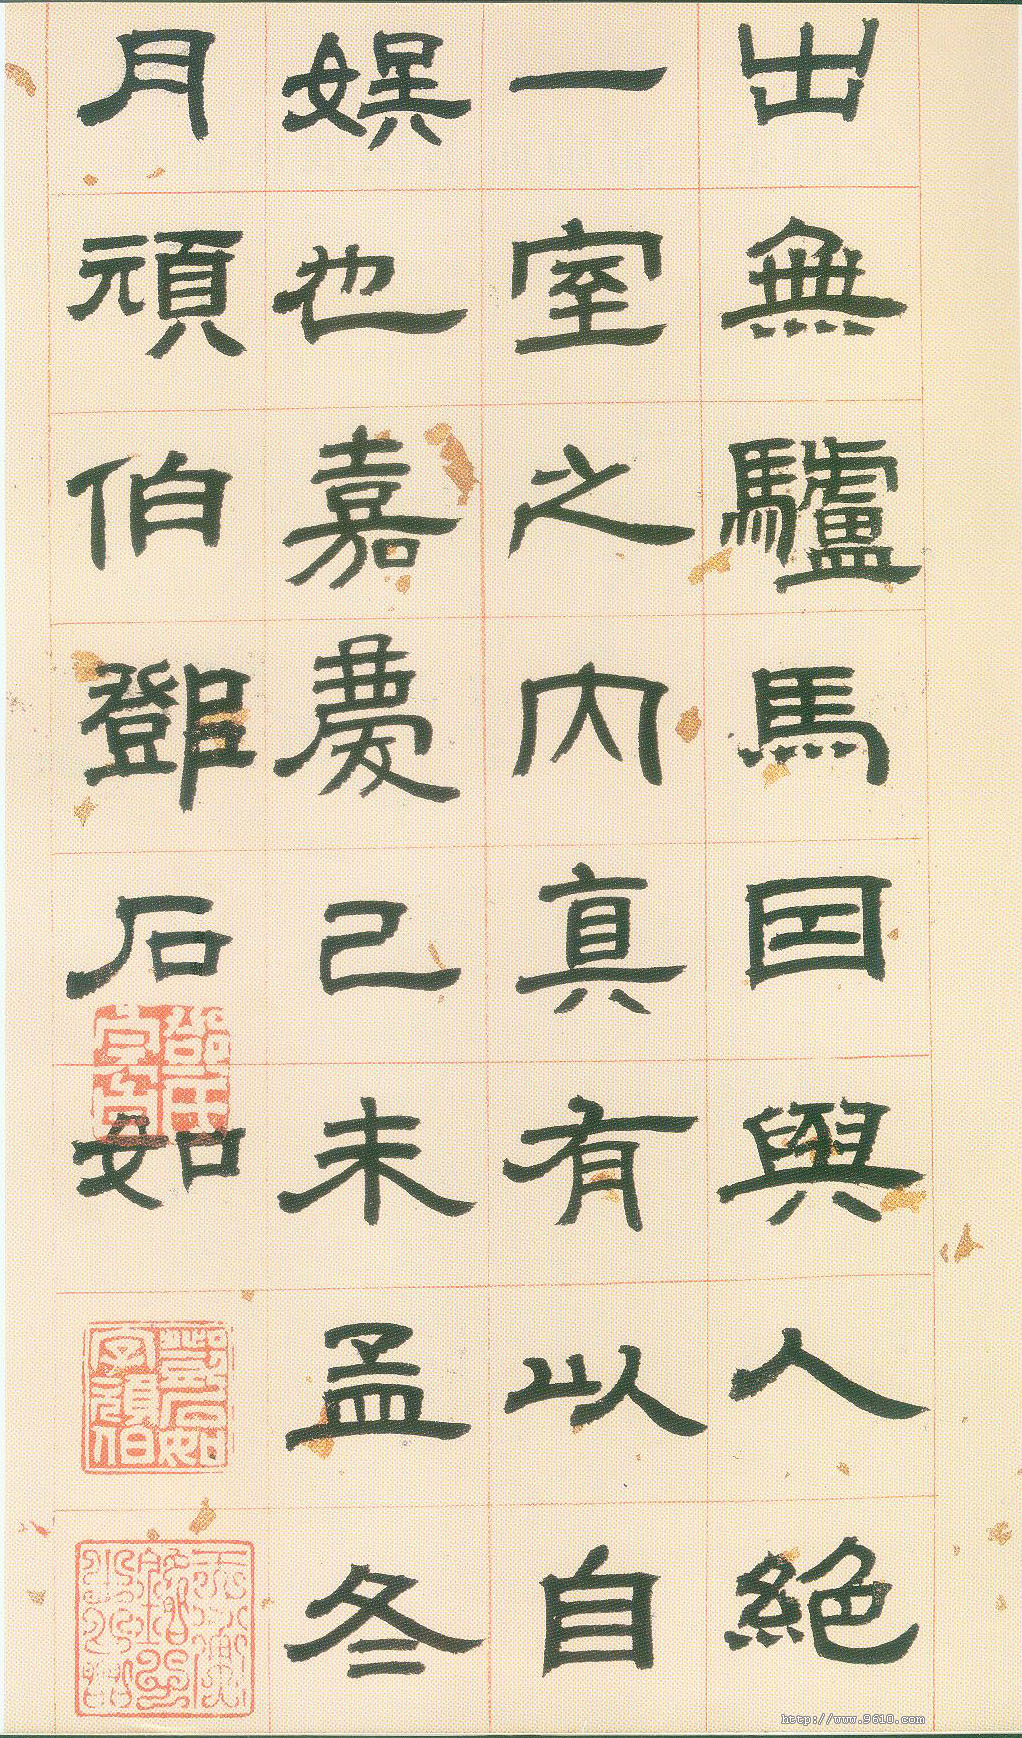 出無驢馬因與人絕
一室之内真有以自
娛也嘉慶己未孟冬
月頑伯鄧石如
鄧石如字頑伯
http://www.9610.com